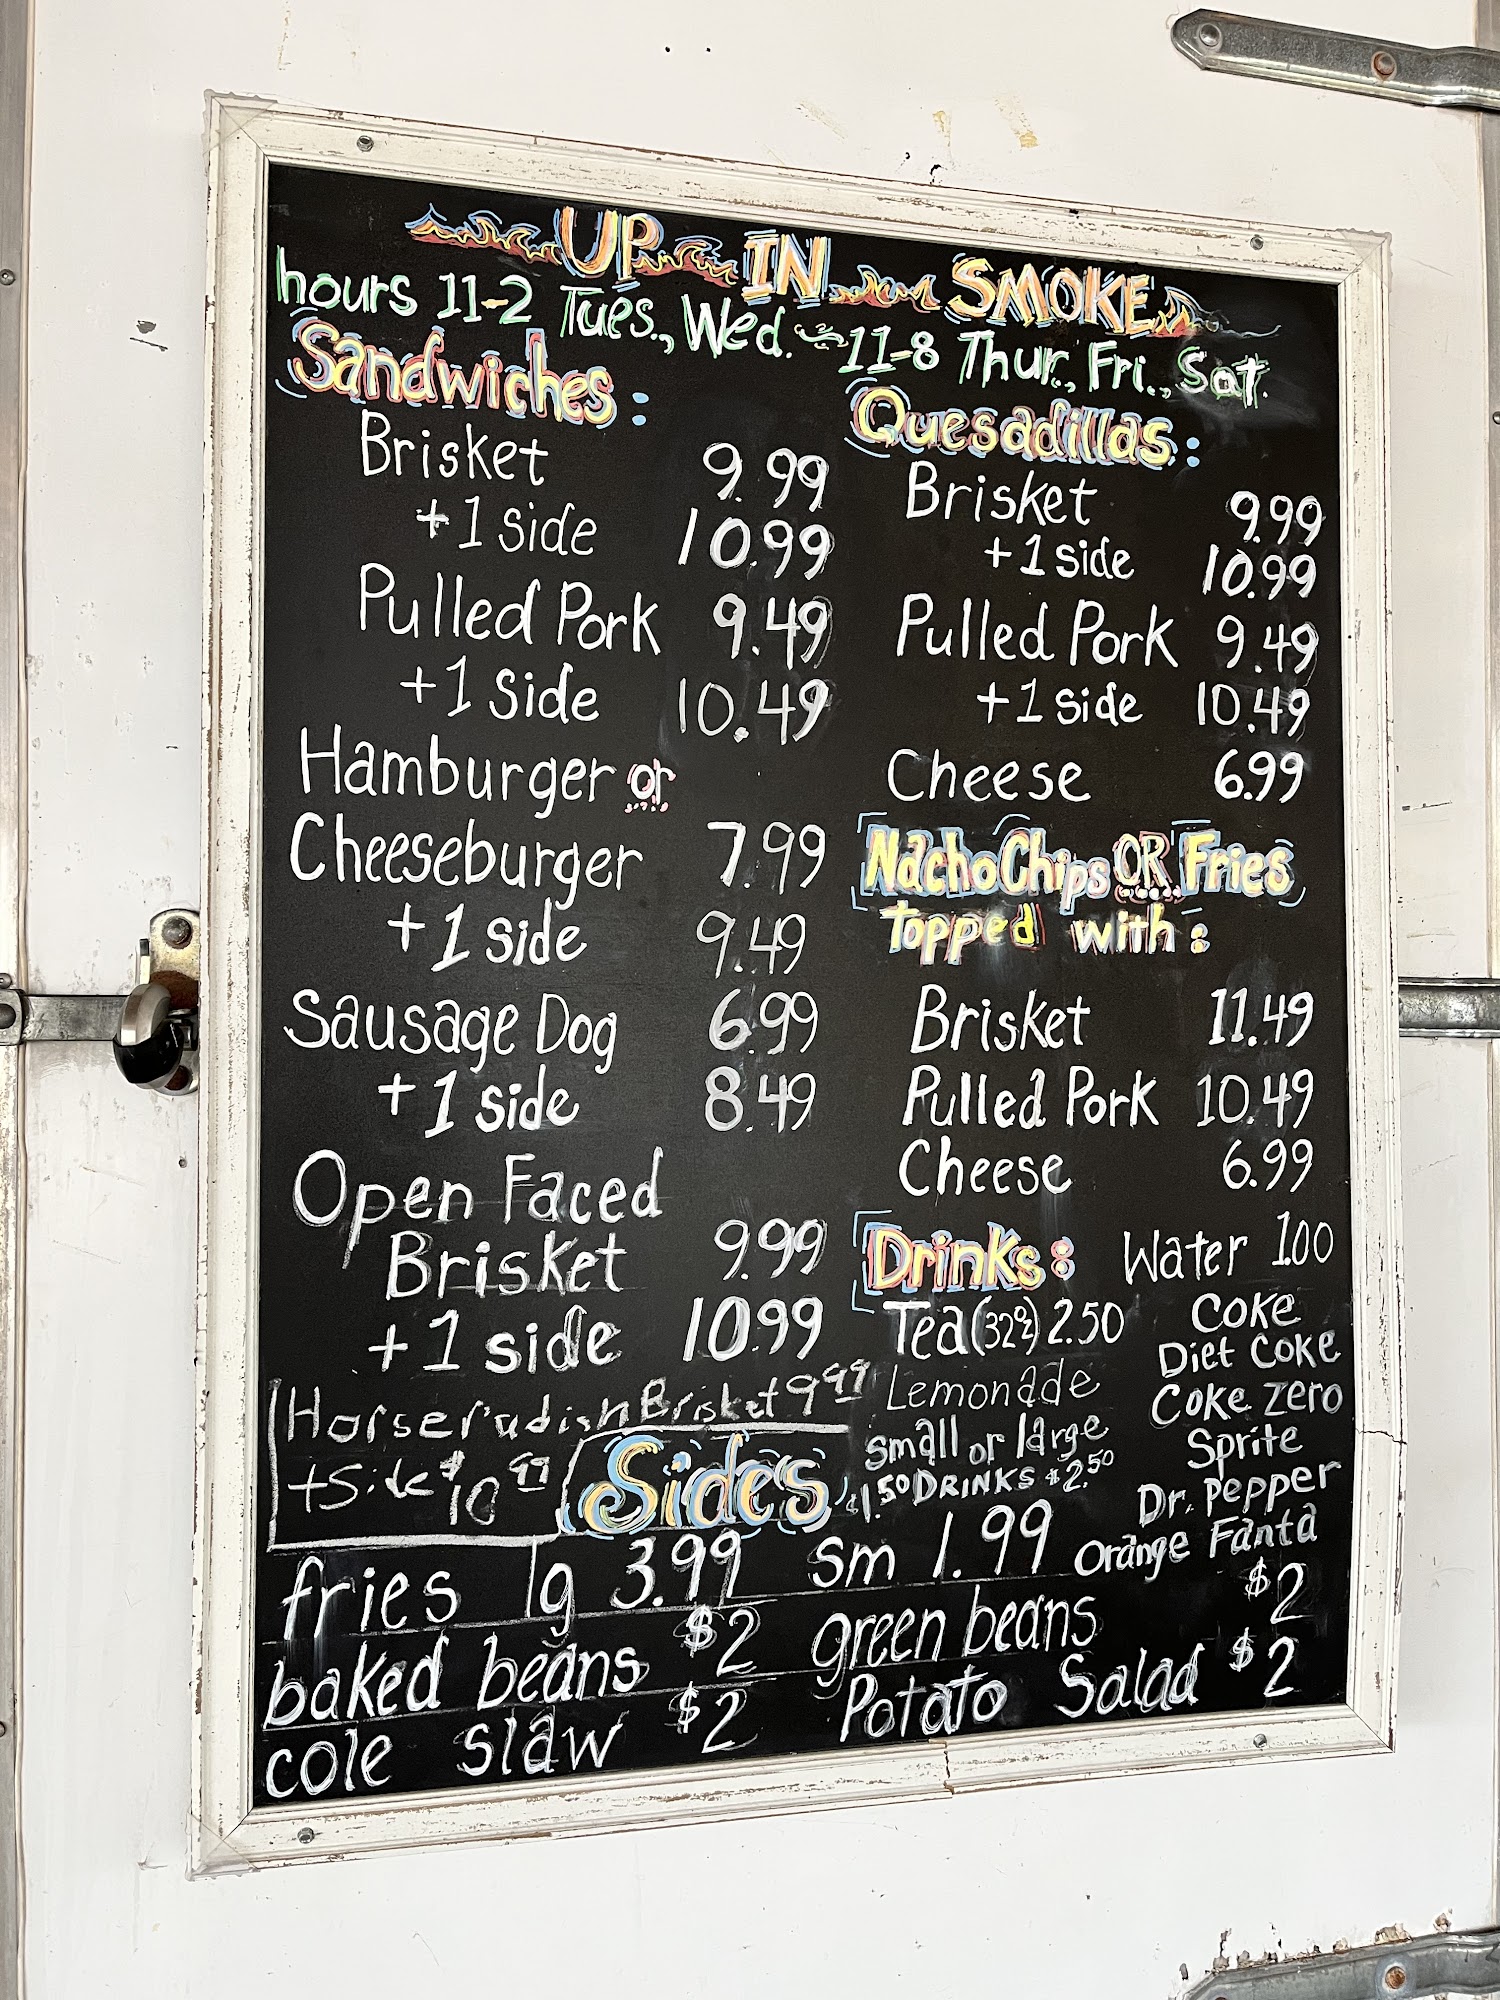 UP IN SMOKE
hours 11-2 Tues., Wed. ~ 11-8 Thur., Fri., Sat.
Sandwiches:
Brisket 9.99
+1 side 10.99
Pulled Pork 9.49
+1 side 10.49
Hamburger or
Cheeseburger 7.99
+1 side 9.49
Sausage Dog 6.99
+1 side 8.49
Open Faced
Brisket 9.99
+1 side 10.99
Horseradish Brisket 9.99
+Side $10.99
Quesadillas:
Brisket 9.99
+1 side 10.99
Pulled Pork 9.49
+1 side 10.49
Cheese 6.99
Nacho Chips OR Fries
Topped with:
Brisket 11.49
Pulled Pork 10.49
Cheese 6.99
Drinks: Water 1.00
Tea (32oz) 2.50
Lemonade
small or large
$1.50 DRINKS $2.50
Coke
Diet Coke
Coke Zero
Sprite
Dr. Pepper
Orange Fanta
Sides
fries lg 3.99 sm 1.99
baked beans $2 green beans $2
cole slaw $2 Potato Salad $2